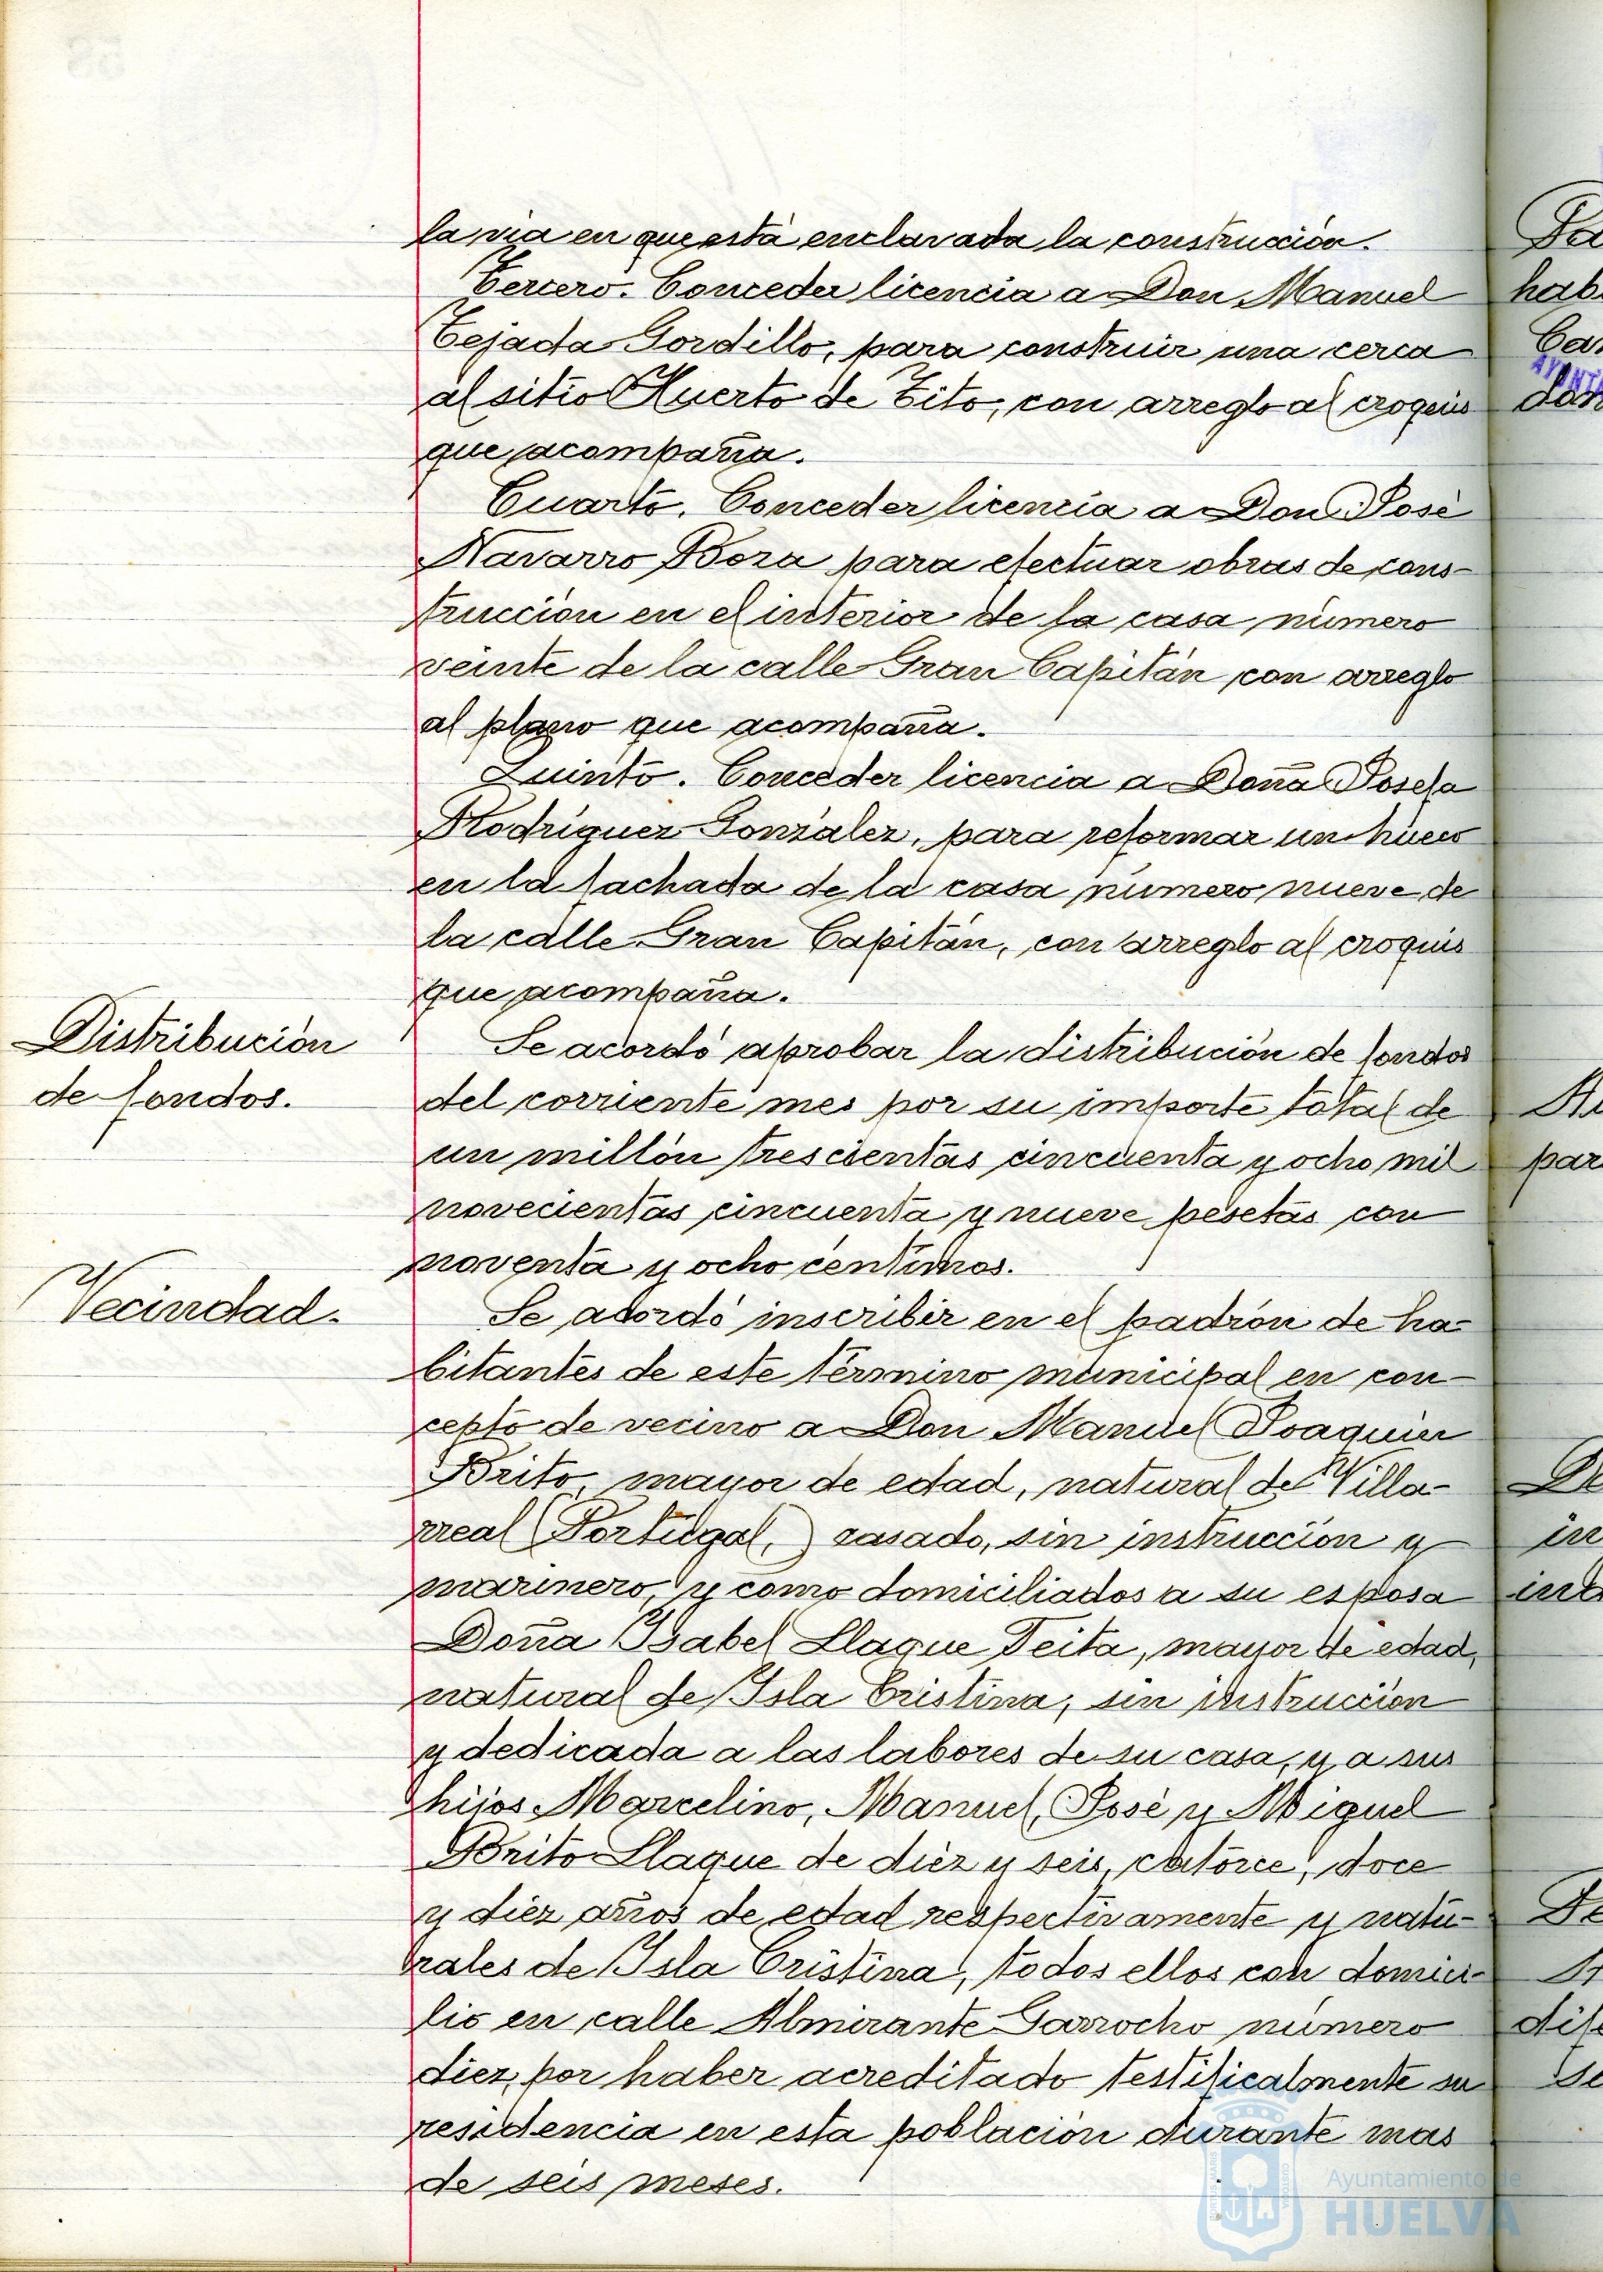 la via en que está enclavada la construcción.
Tercero. Conceder licencia a Don Manuel
Tejada Gordillo, para construir una cerca
al sitio Huerto de Tito, con arreglo al croquis
que acompaña.
Cuarto. Conceder licencia a Don José
Navarro Boza para efectuar obras de cons-
trucción en el interior de la casa número
veinte de la calle Gran Capitán con arreglo
al plano que acompaña.
Quinto. Conceder licencia a Doña Josefa
Rodríguez González, para reformar un hueco
en la fachada de la casa número nueve de
la calle Gran Capitán, con arreglo al croquis
que acompaña.
Distribución
de fondos.
Se acordó aprobar la distribución de fondos
del corriente mes por su importe total de
un millón trescientas cincuenta y ocho mil
novecientas cincuenta y nueve pesetas con
noventa y ocho céntimos.
Vecindad.
Se acordó inscribir en el padrón de ha-
bitantes de este término municipal en con-
cepto de vecino a Don Manuel Joaquin
Brito, mayor de edad, natural de Villa-
rreal (Portugal,) casado, sin instrucción y
marinero, y como domiciliados a su esposa
Doña Isabel Llaque Feita, mayor de edad,
natural de Isla Cristina, sin instrucción
y dedicada a las labores de su casa, y a sus
hijos Marcelino, Manuel, José y Miguel
Brito Llaque de diez y seis, catorce, doce
y diez años de edad respectivamente y natu-
rales de Isla Cristina, todos ellos con domici-
lio en calle Almirante Garrocho número
diez, por haber acreditado testificalmente su
residencia en esta población durante mas
de seis meses.
Ayuntamiento de
HUELVA